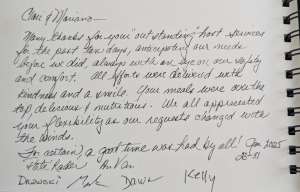 Clare & Mariano—
Many thanks for your "outstanding" host services
for the past ten days, anticipating our needs
before we did, always with an eye on our safety
and comfort. All efforts were achieved with
kindness and a smile. Your meals were over the
top delicious & nutritious. We all appreciated
your flexibility as our requests changed with
the winds.
For certain, a good time was had by all! Jan 2025
22-31
Pete
Dawn Kelly